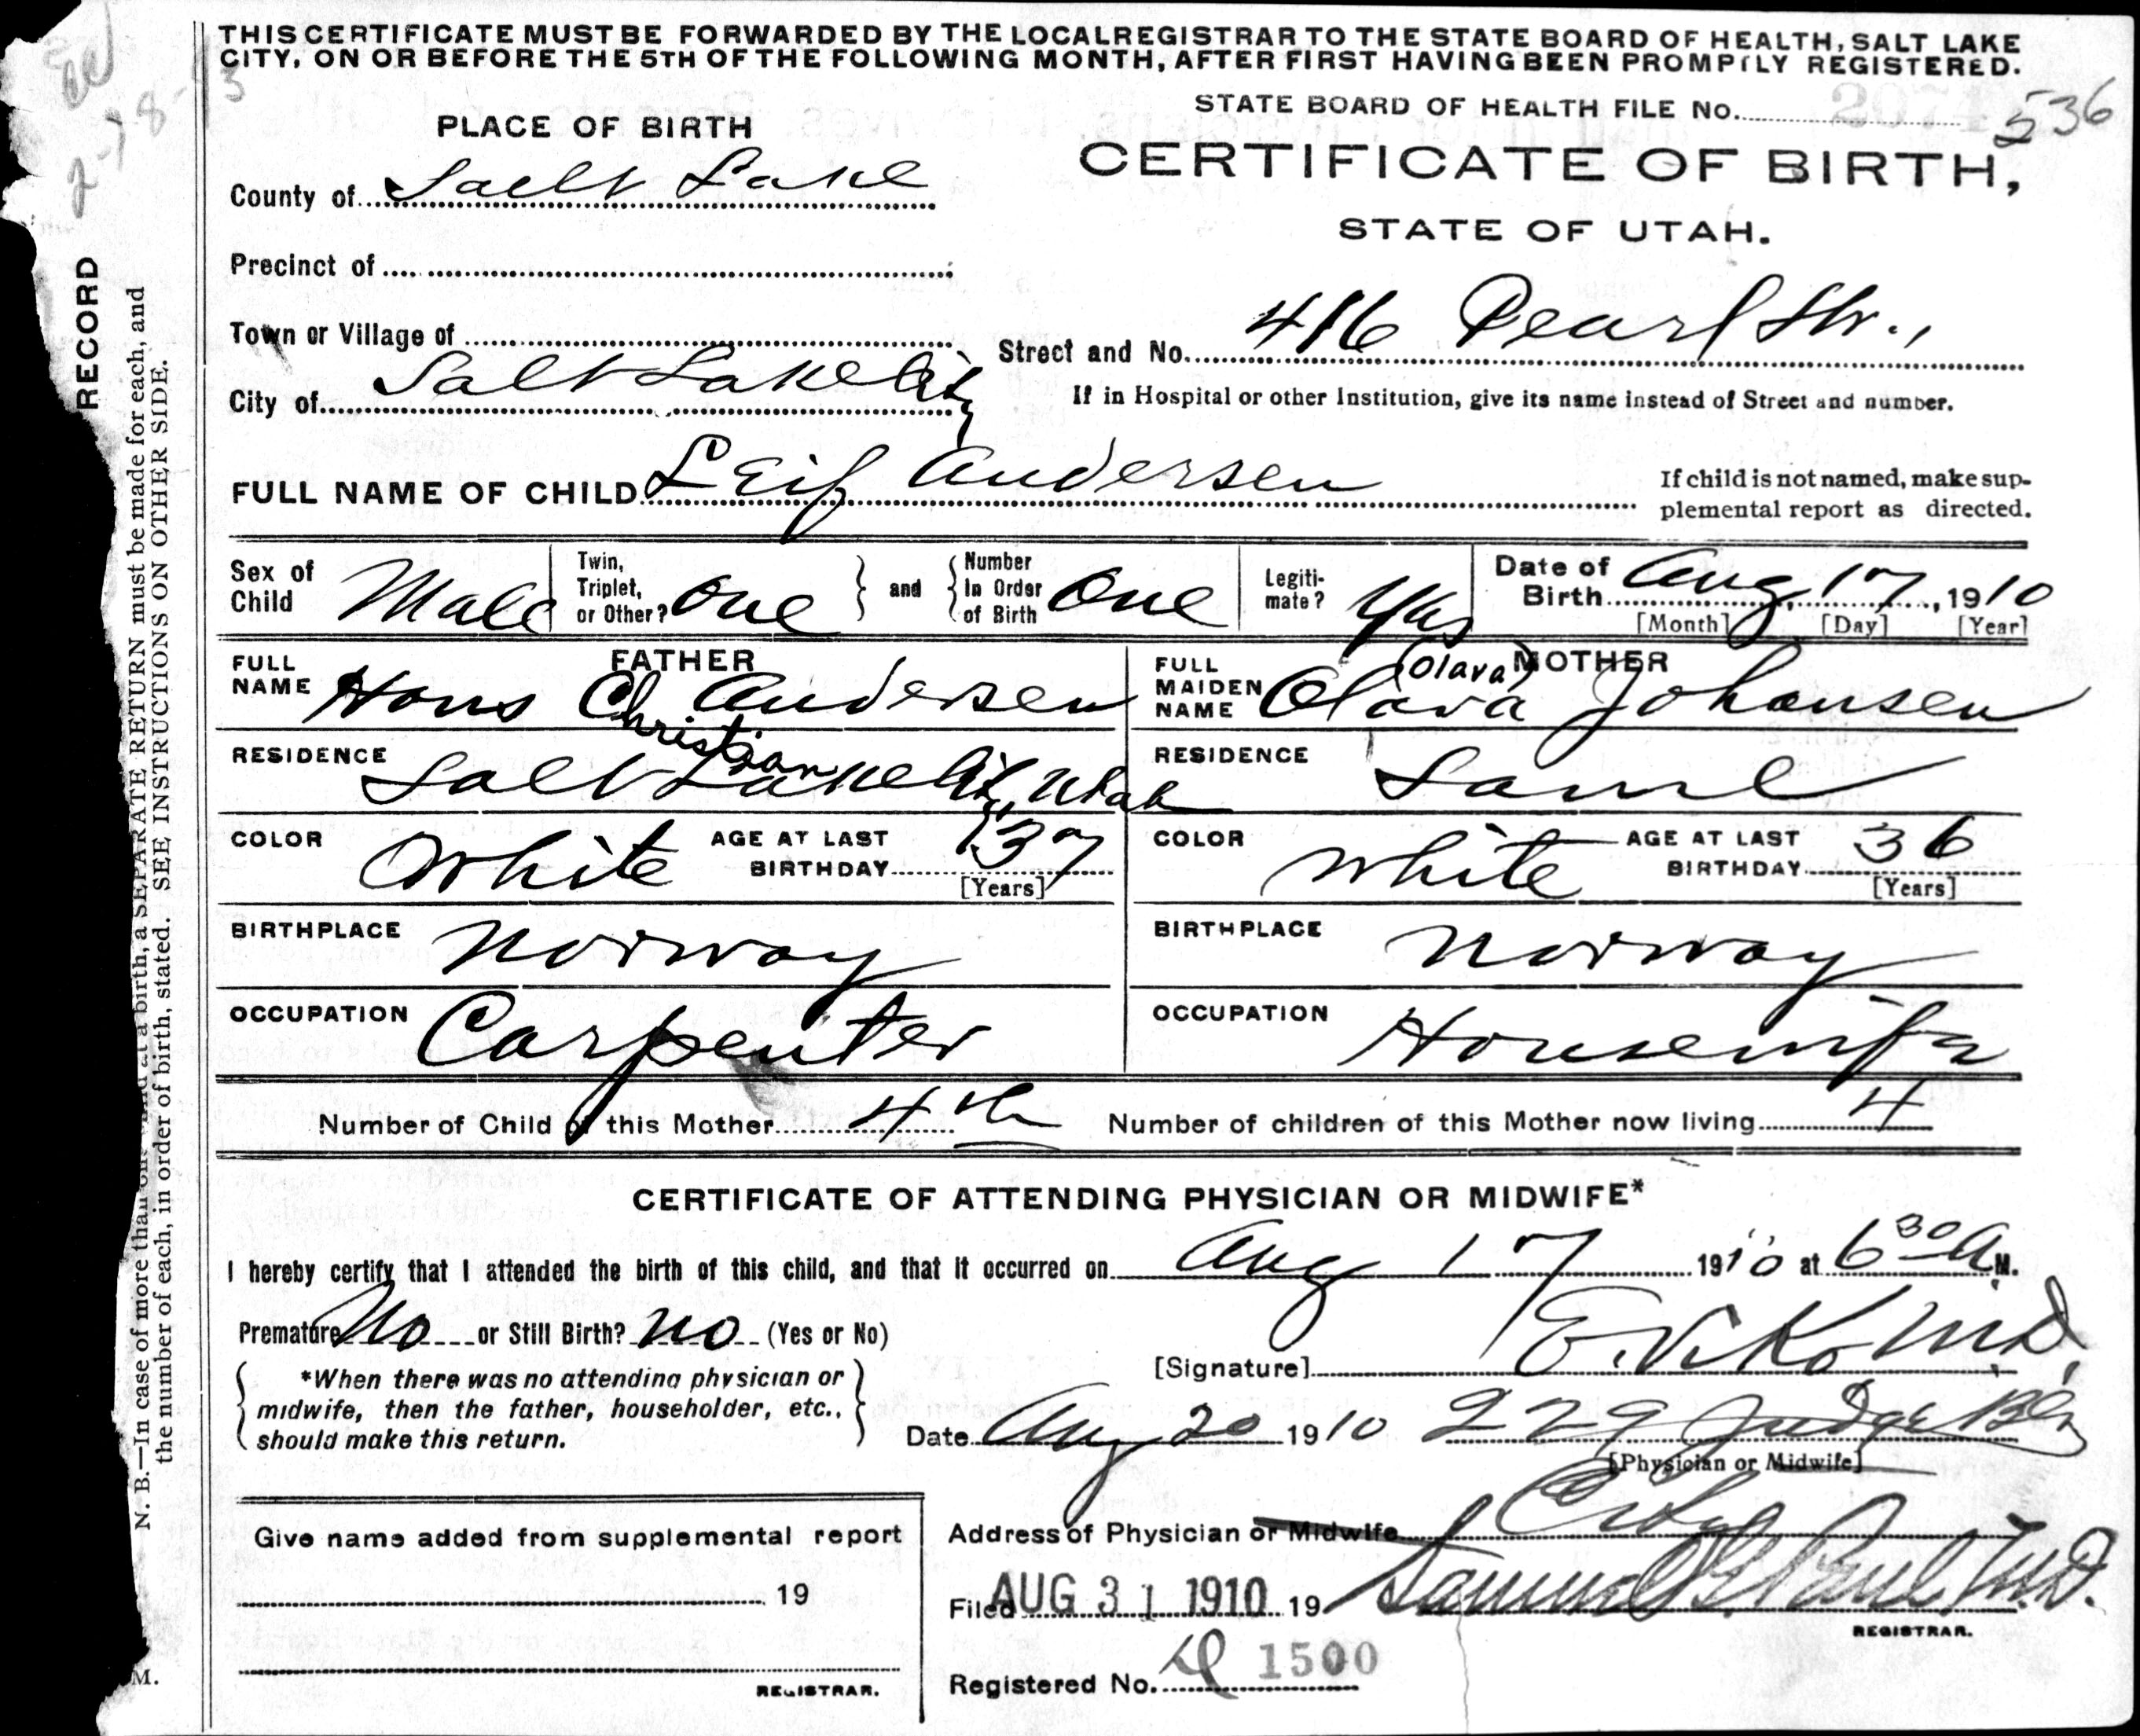 THIS CERTIFICATE MUST BE FORWARDED BY THE LOCAL REGISTRAR TO THE STATE BOARD OF HEALTH, SALT LAKE
CITY, ON OR BEFORE THE 5TH OF THE FOLLOWING MONTH, AFTER FIRST HAVING BEEN PROMPTLY REGISTERED.
STATE BOARD OF HEALTH FILE No. 536
PLACE OF BIRTH
CERTIFICATE OF BIRTH,
County of Salt Lake
STATE OF UTAH.
Precinct of
Town or Village of
Street and No. 416 Pearl Str.,
City of Salt Lake City
If in Hospital or other Institution, give its name instead of Street and number.
FULL NAME OF CHILD Leif Andersen
If child is not named, make sup-
plemental report as directed.
Sex of Child Male Twin, Triplet, or Other? One and Number In Order of Birth One Legiti-mate? Yes Date of Birth Aug 17, 1910
[Month] [Day] [Year]
FATHER
(Olava) MOTHER
FULL NAME Hans Ch Andersen
Christian
FULL MAIDEN NAME Olava Johansen
RESIDENCE Salt Lake City, Utah
RESIDENCE Same
COLOR White AGE AT LAST BIRTHDAY 37 [Years]
COLOR White AGE AT LAST BIRTHDAY 36 [Years]
BIRTHPLACE Norway
BIRTHPLACE Norway
OCCUPATION Carpenter
OCCUPATION Housewife
Number of Child of this Mother 4th Number of children of this Mother now living 4
CERTIFICATE OF ATTENDING PHYSICIAN OR MIDWIFE*
I hereby certify that I attended the birth of this child, and that it occurred on Aug 17 1910 at 6 30 A.M.
Premature No or Still Birth? No (Yes or No)
[Signature] M.D.
*When there was no attending physician or
midwife, then the father, householder, etc.,
should make this return.
Date Aug 20 1910 229 Judge Bld
[Physician or Midwife]
Address of Physician or Midwife City
Give name added from supplemental report
19
REGISTRAR.
Filed AUG 31 1910 19 Samuel G. Paul, M.D.
REGISTRAR.
Registered No. 1500
RECORD
N. B.—In case of more than one child at a birth, a SEPARATE RETURN must be made for each, and
the number of each, in order of birth, stated. SEE INSTRUCTIONS ON OTHER SIDE.